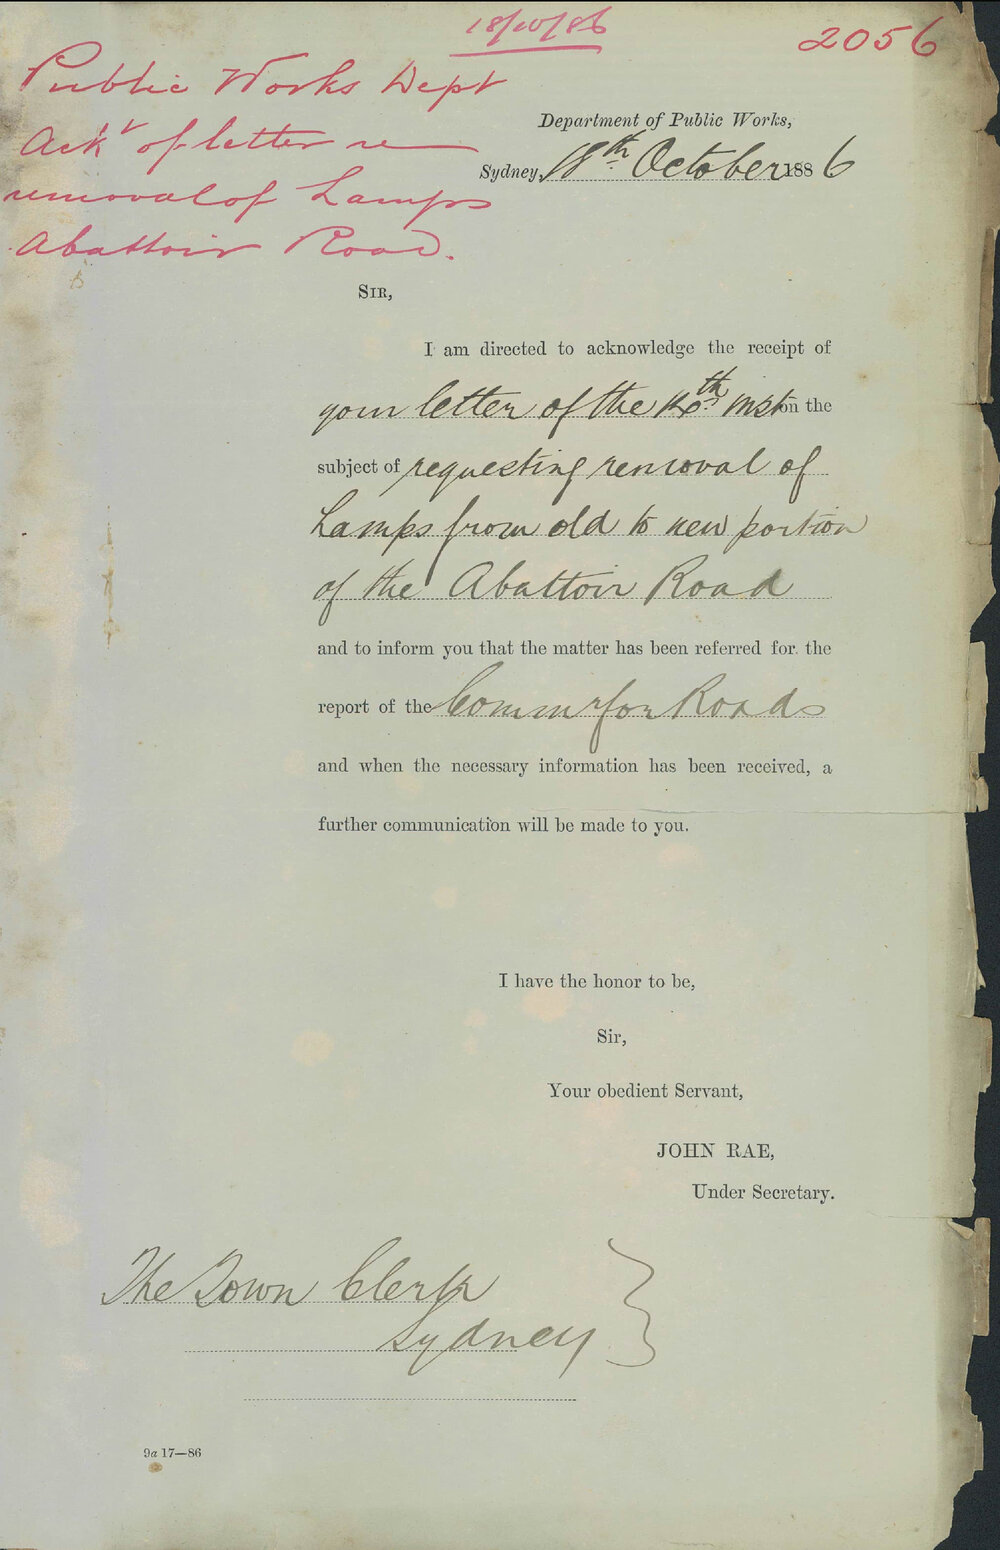 18/10/86
2056
Public Works Dept
Ackt of letter re
removal of Lamps
Abattoir Road.
Department of Public Works,
Sydney, 18th October 1886
SIR,
I am directed to acknowledge the receipt of
your letter of the 16th inst on the
subject of requesting removal of
Lamps from old to new portion
of the Abattoir Road
and to inform you that the matter has been referred for the
report of the Commr for Roads
and when the necessary information has been received, a
further communication will be made to you.
I have the honor to be,
Sir,
Your obedient Servant,
JOHN RAE,
Under Secretary.
The Town Clerk
Sydney
9a 17—86